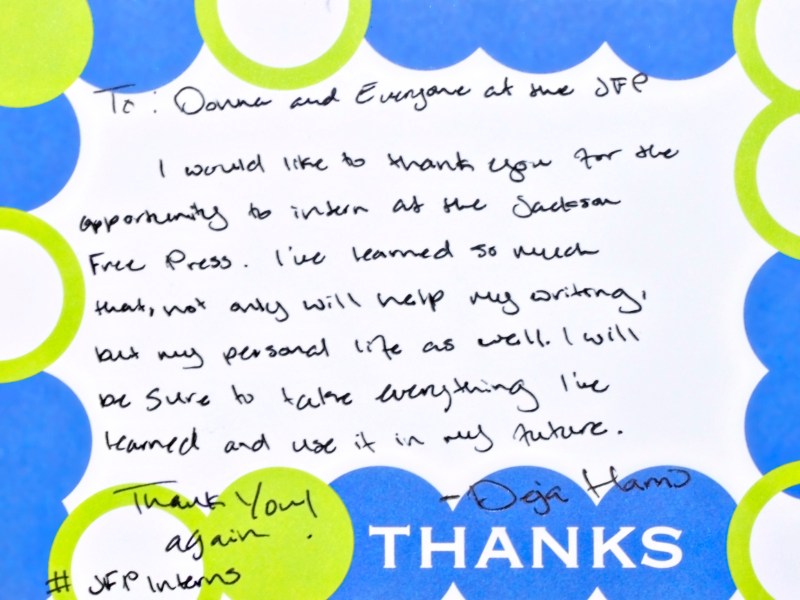 To: Donna and Everyone at the JFP
I would like to thank you for the
opportunity to intern at the Jackson
Free Press. I've learned so much
that, not only will help my writing,
but my personal life as well. I will
be sure to take everything I've
learned and use it in my future.
Thank You!
again.
- Deja Harris
# JFP Interns
THANKS